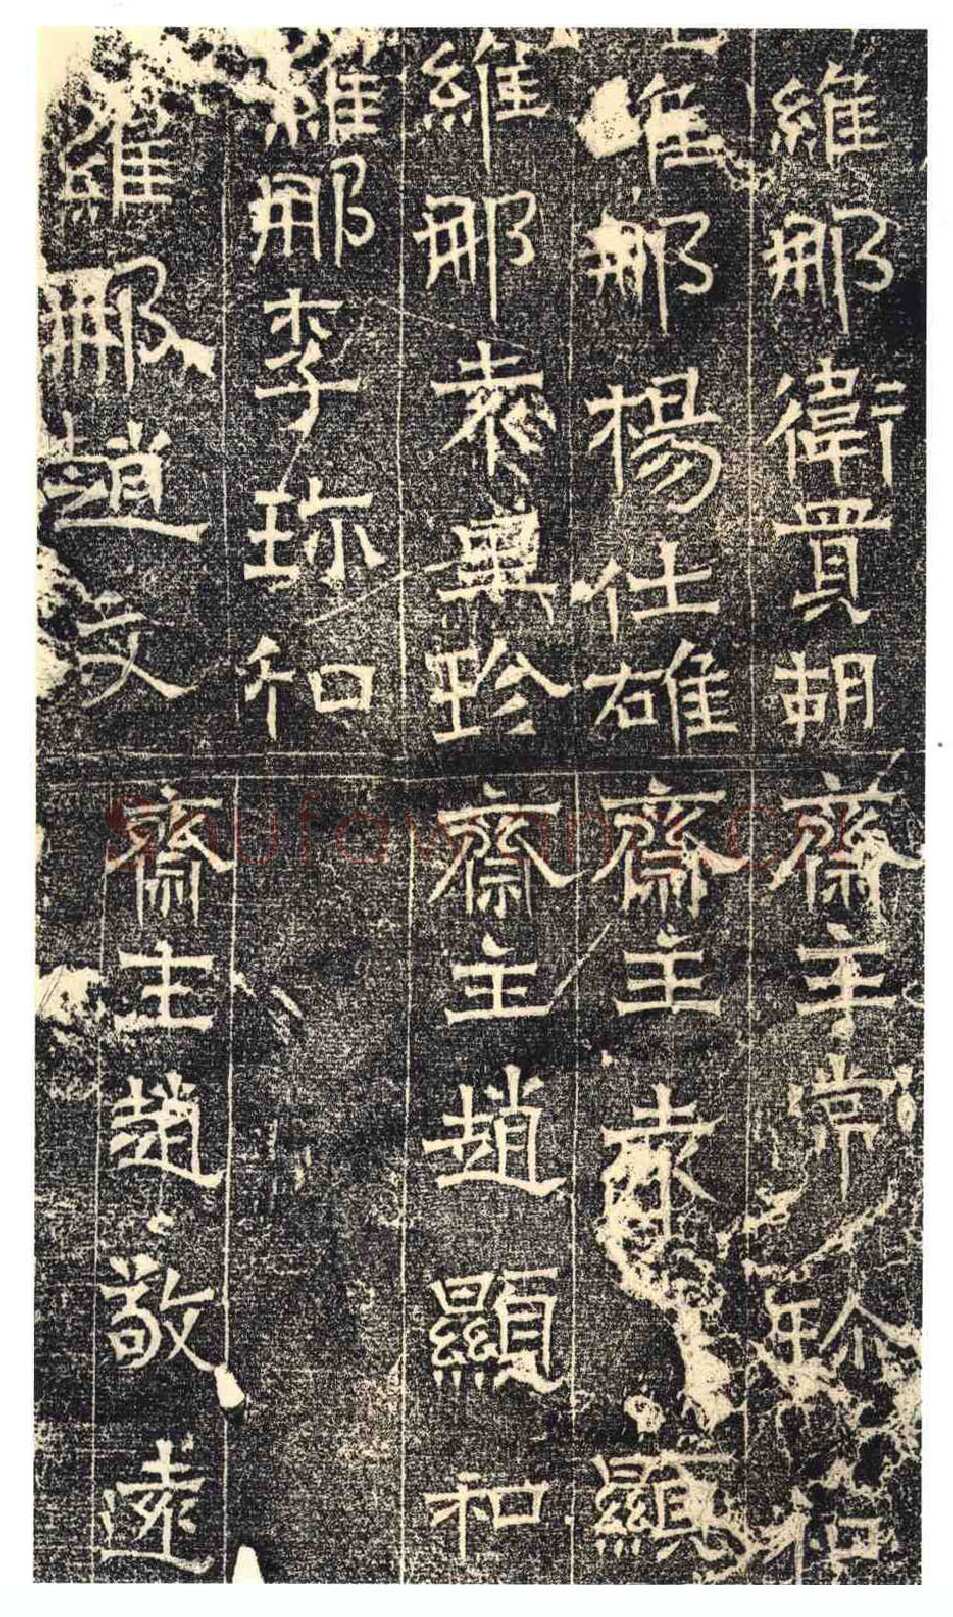 維那衛貫胡
維那楊仕雄
維那袁興珍
維那李珎和
維那趙文
齋主常
齋主袁 顯
齋主趙顯和
齋主趙敬遠